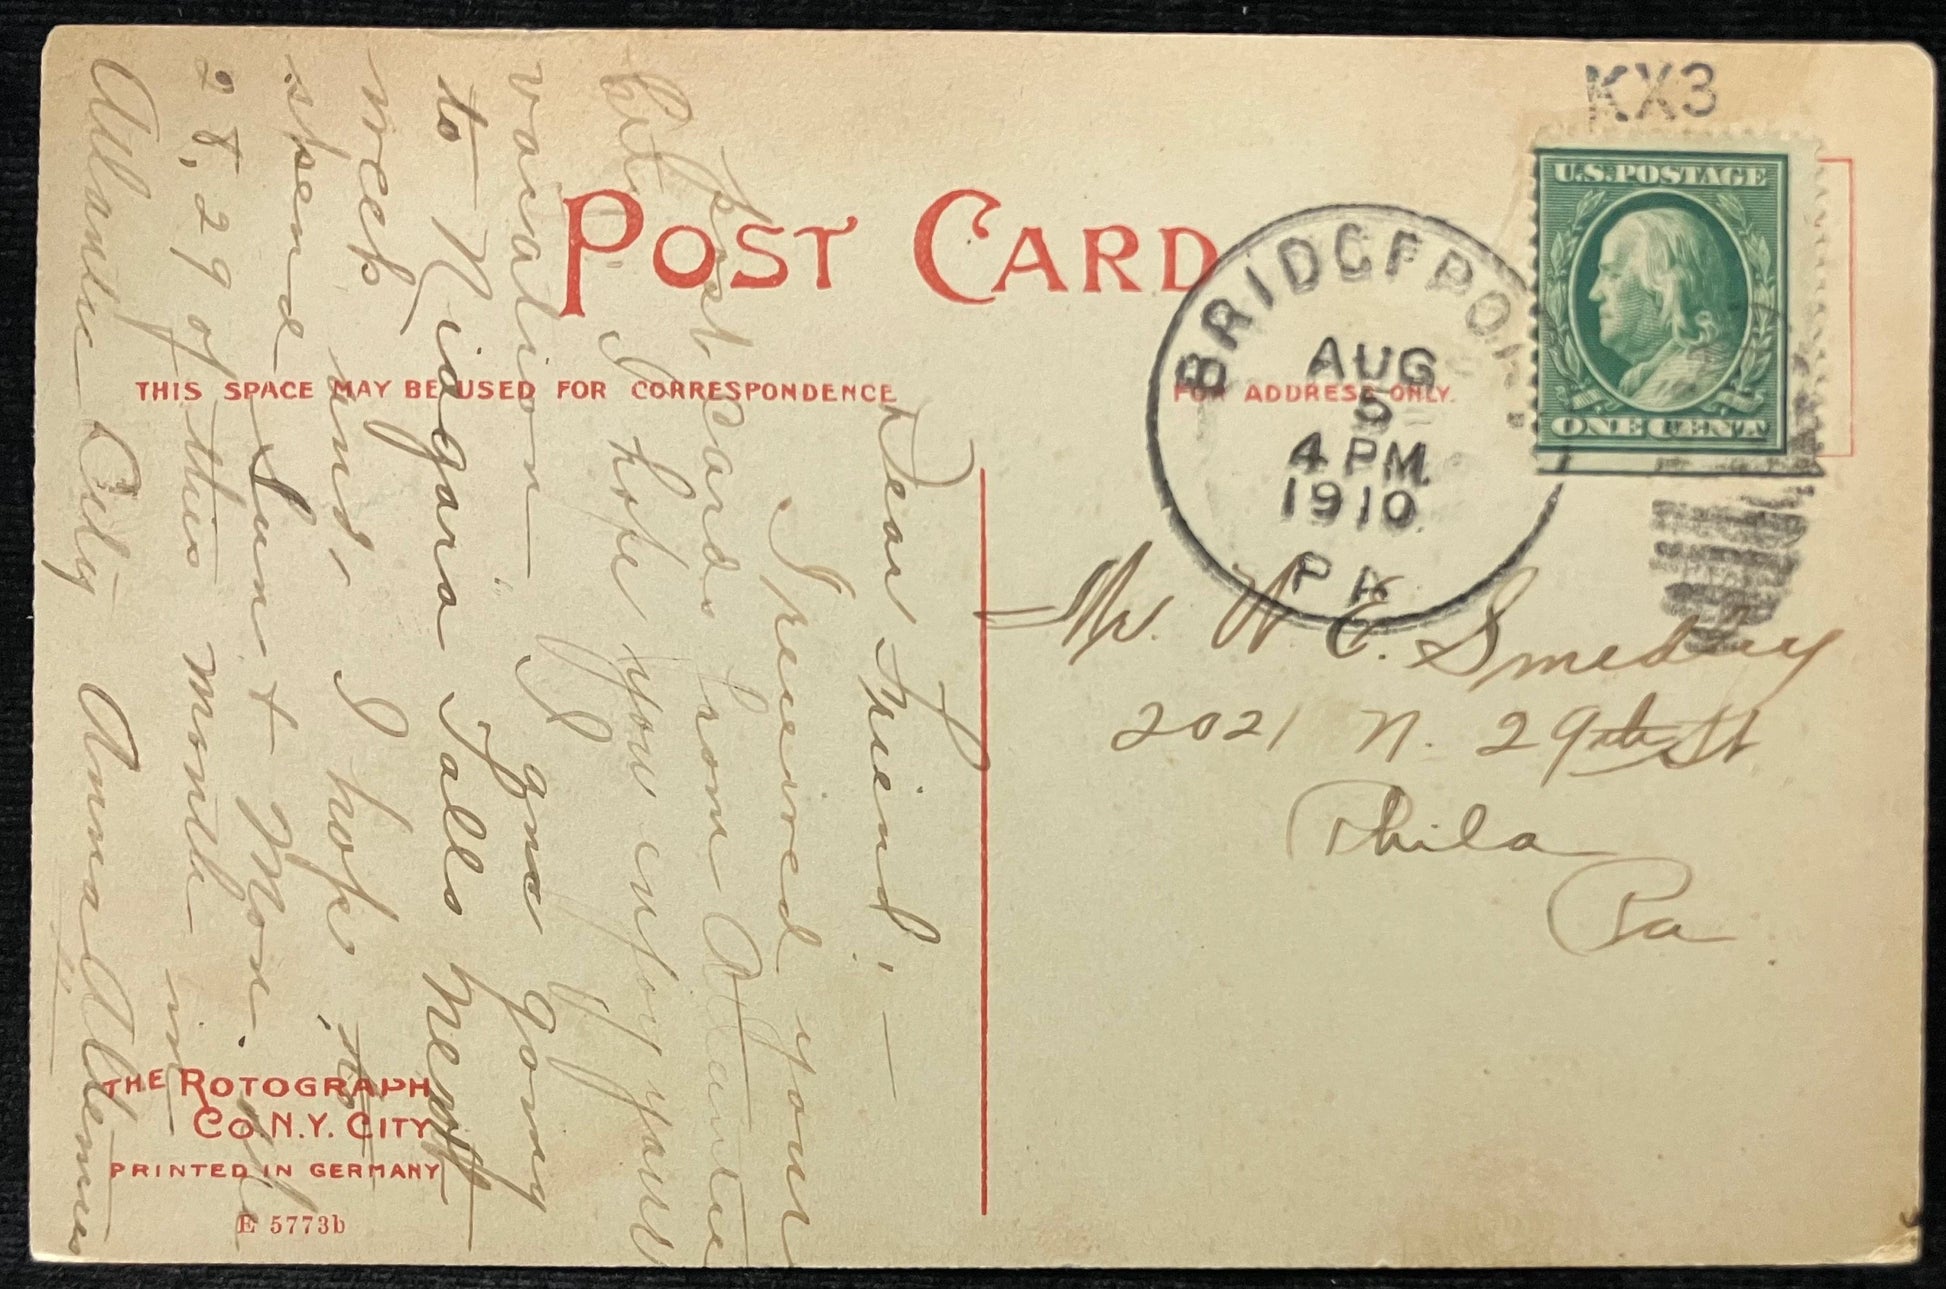 KX3
U.S. POSTAGE
ONE CENT
POST CARD
THIS SPACE MAY BE USED FOR CORRESPONDENCE
FOR ADDRESS ONLY.
BRIDGEPORT
AUG
5
4 PM
1910
PA
Mr. W. E. Smedley
2021 N. 29th St
Phila
Pa
Dear Friend! —
I received your
post cards from Atlantic
City I hope you enjoy your
vacation — I gna going
to Niagara Falls next
week and, I hope to
spend Sun & Mon.
28, 29 of this month in
Atlantic City Anna
THE ROTOGRAPH
CO. N.Y. CITY
PRINTED IN GERMANY
E 5773b